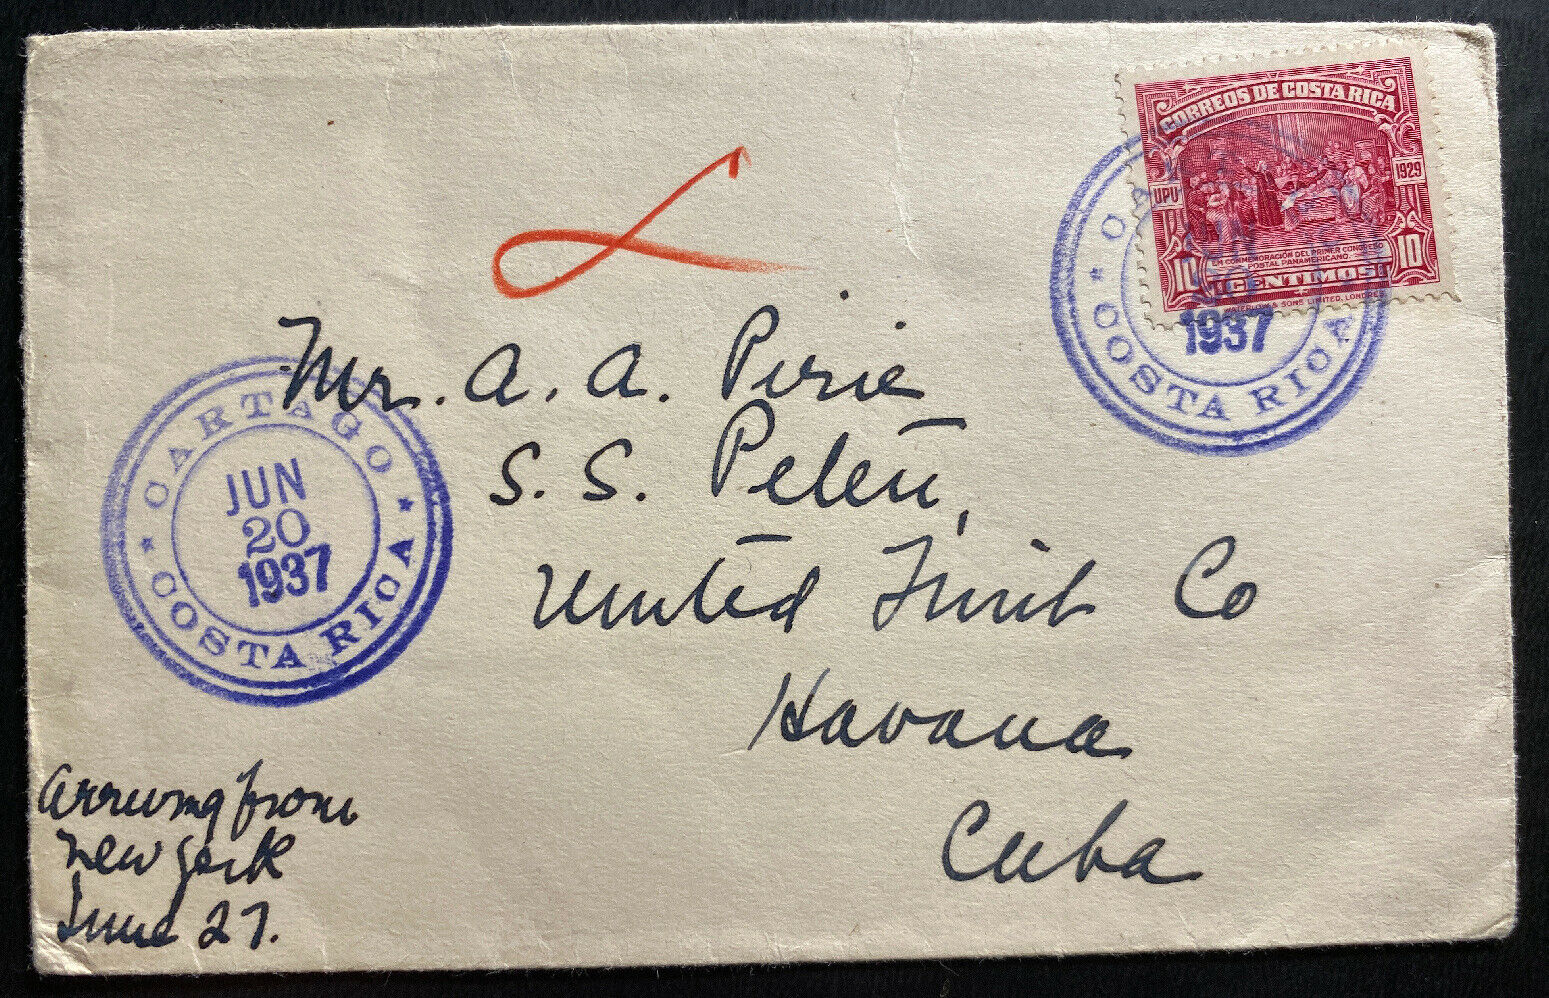 CORREOS DE COSTA RICA
UPU 1929
EN CONMEMORACIÓN DEL PRIMER CONGRESO
POSTAL PANAMERICANO.
10 CENTIMOS 10
WATERLOW & SONS LIMITED, LONDRES
1937
COSTA RICA
Mr. A. A. Pirie
S. S. Peten,
United Fruit Co
Havana
Cuba
CARTAGO
JUN
20
1937
COSTA RICA
Arriving from
New York
June 27.